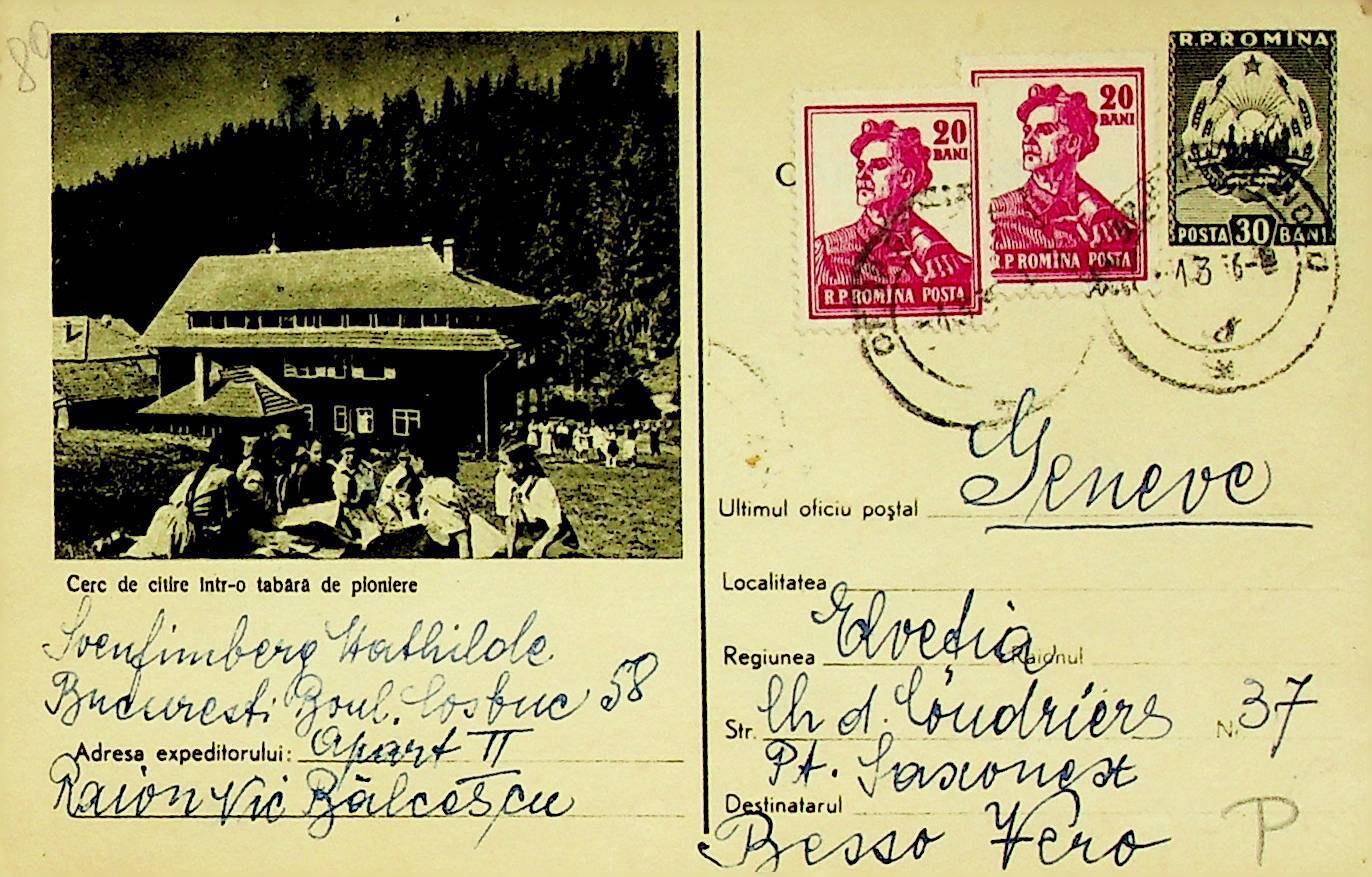 80
R.P.ROMÎNA
20
BANI
R.P.ROMÎNA POSTA
20
BANI
R.P.ROMÎNA POSTA
POSTA 30 BANI
13
Geneve
Ultimul oficiu poştal
Cerc de citire într-o tabără de pioniere
Localitatea
Elveţia
Regiunea
Raionul
Mathilde
Bucureşti Boul. Cosbuc 58
Str. Ch d. Coudriers N. 37
Adresa expeditorului: apart II
Pt.
Raion Nic Bălcescu
Destinatarul
Besso Vero
P